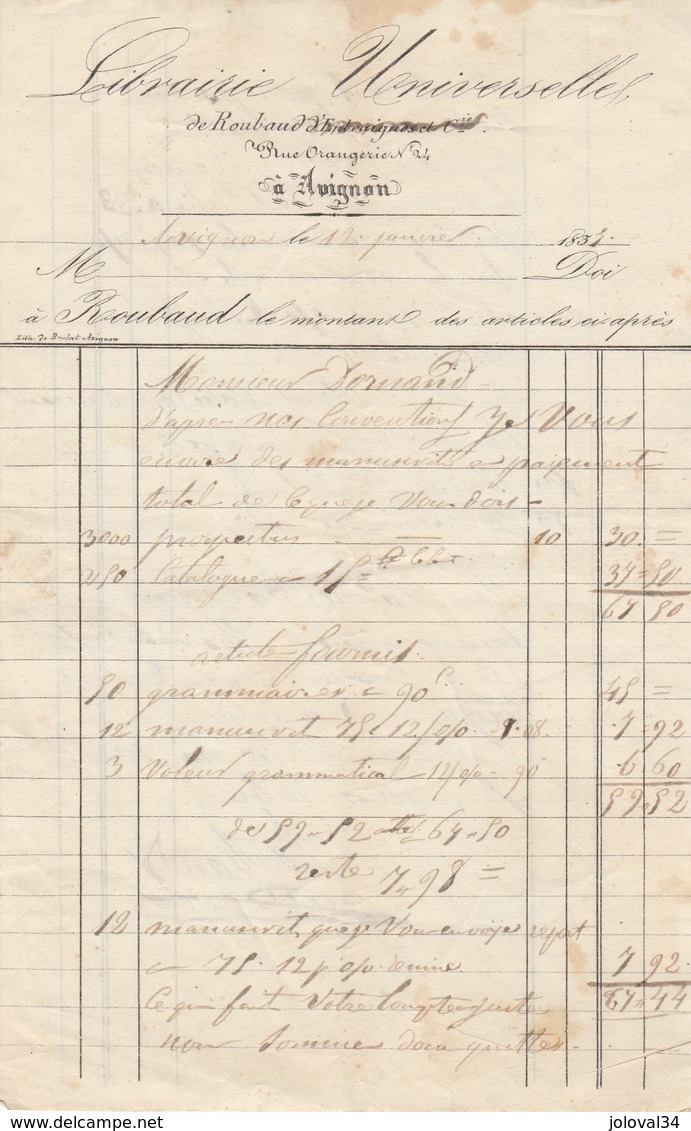 Librairie Universelle,
de Roubaud d'Entraigues et Cie.
Rue Orangerie No 24
à Avignon
Avignon le 12 janvier 183
M Doi
à Roubaud le montant des articles ci-après
Lith. de Brulat Avignon
Monsieur Dornand
d'après nos Conventions Je Vous
envoie des manuscrits payement
total de ce que je Vous dois
3000 prospectus — 10 30 =
250 Catalogues a 15 = 37 = 50
67 50
article fournis
50 grammaires a 90c 45 =
12 manuscrit 75 12/0/0 - 9.08. 7 = 92
3 Voleur grammatical 12/0/0 = 90 6 60
59 " 52
de 59 " 52 67 " 50
reste 7 " 98 =
12 manuscrits que je Vous envoye
a 75. 12 p o/o remise 7 92
Ce qui fait Votre Compte juste 67 " 44
nous Sommes donc quittes.
joloval34